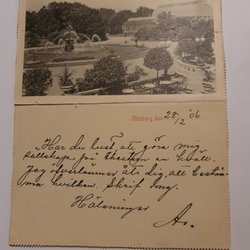 Göteborg den 28/2 '06
"Har du lust att göra mig
sällskap på theatern en kväll.
Jag öfverlämnar åt dig att bestä
ma hvilken. Skrif
Hälsningar